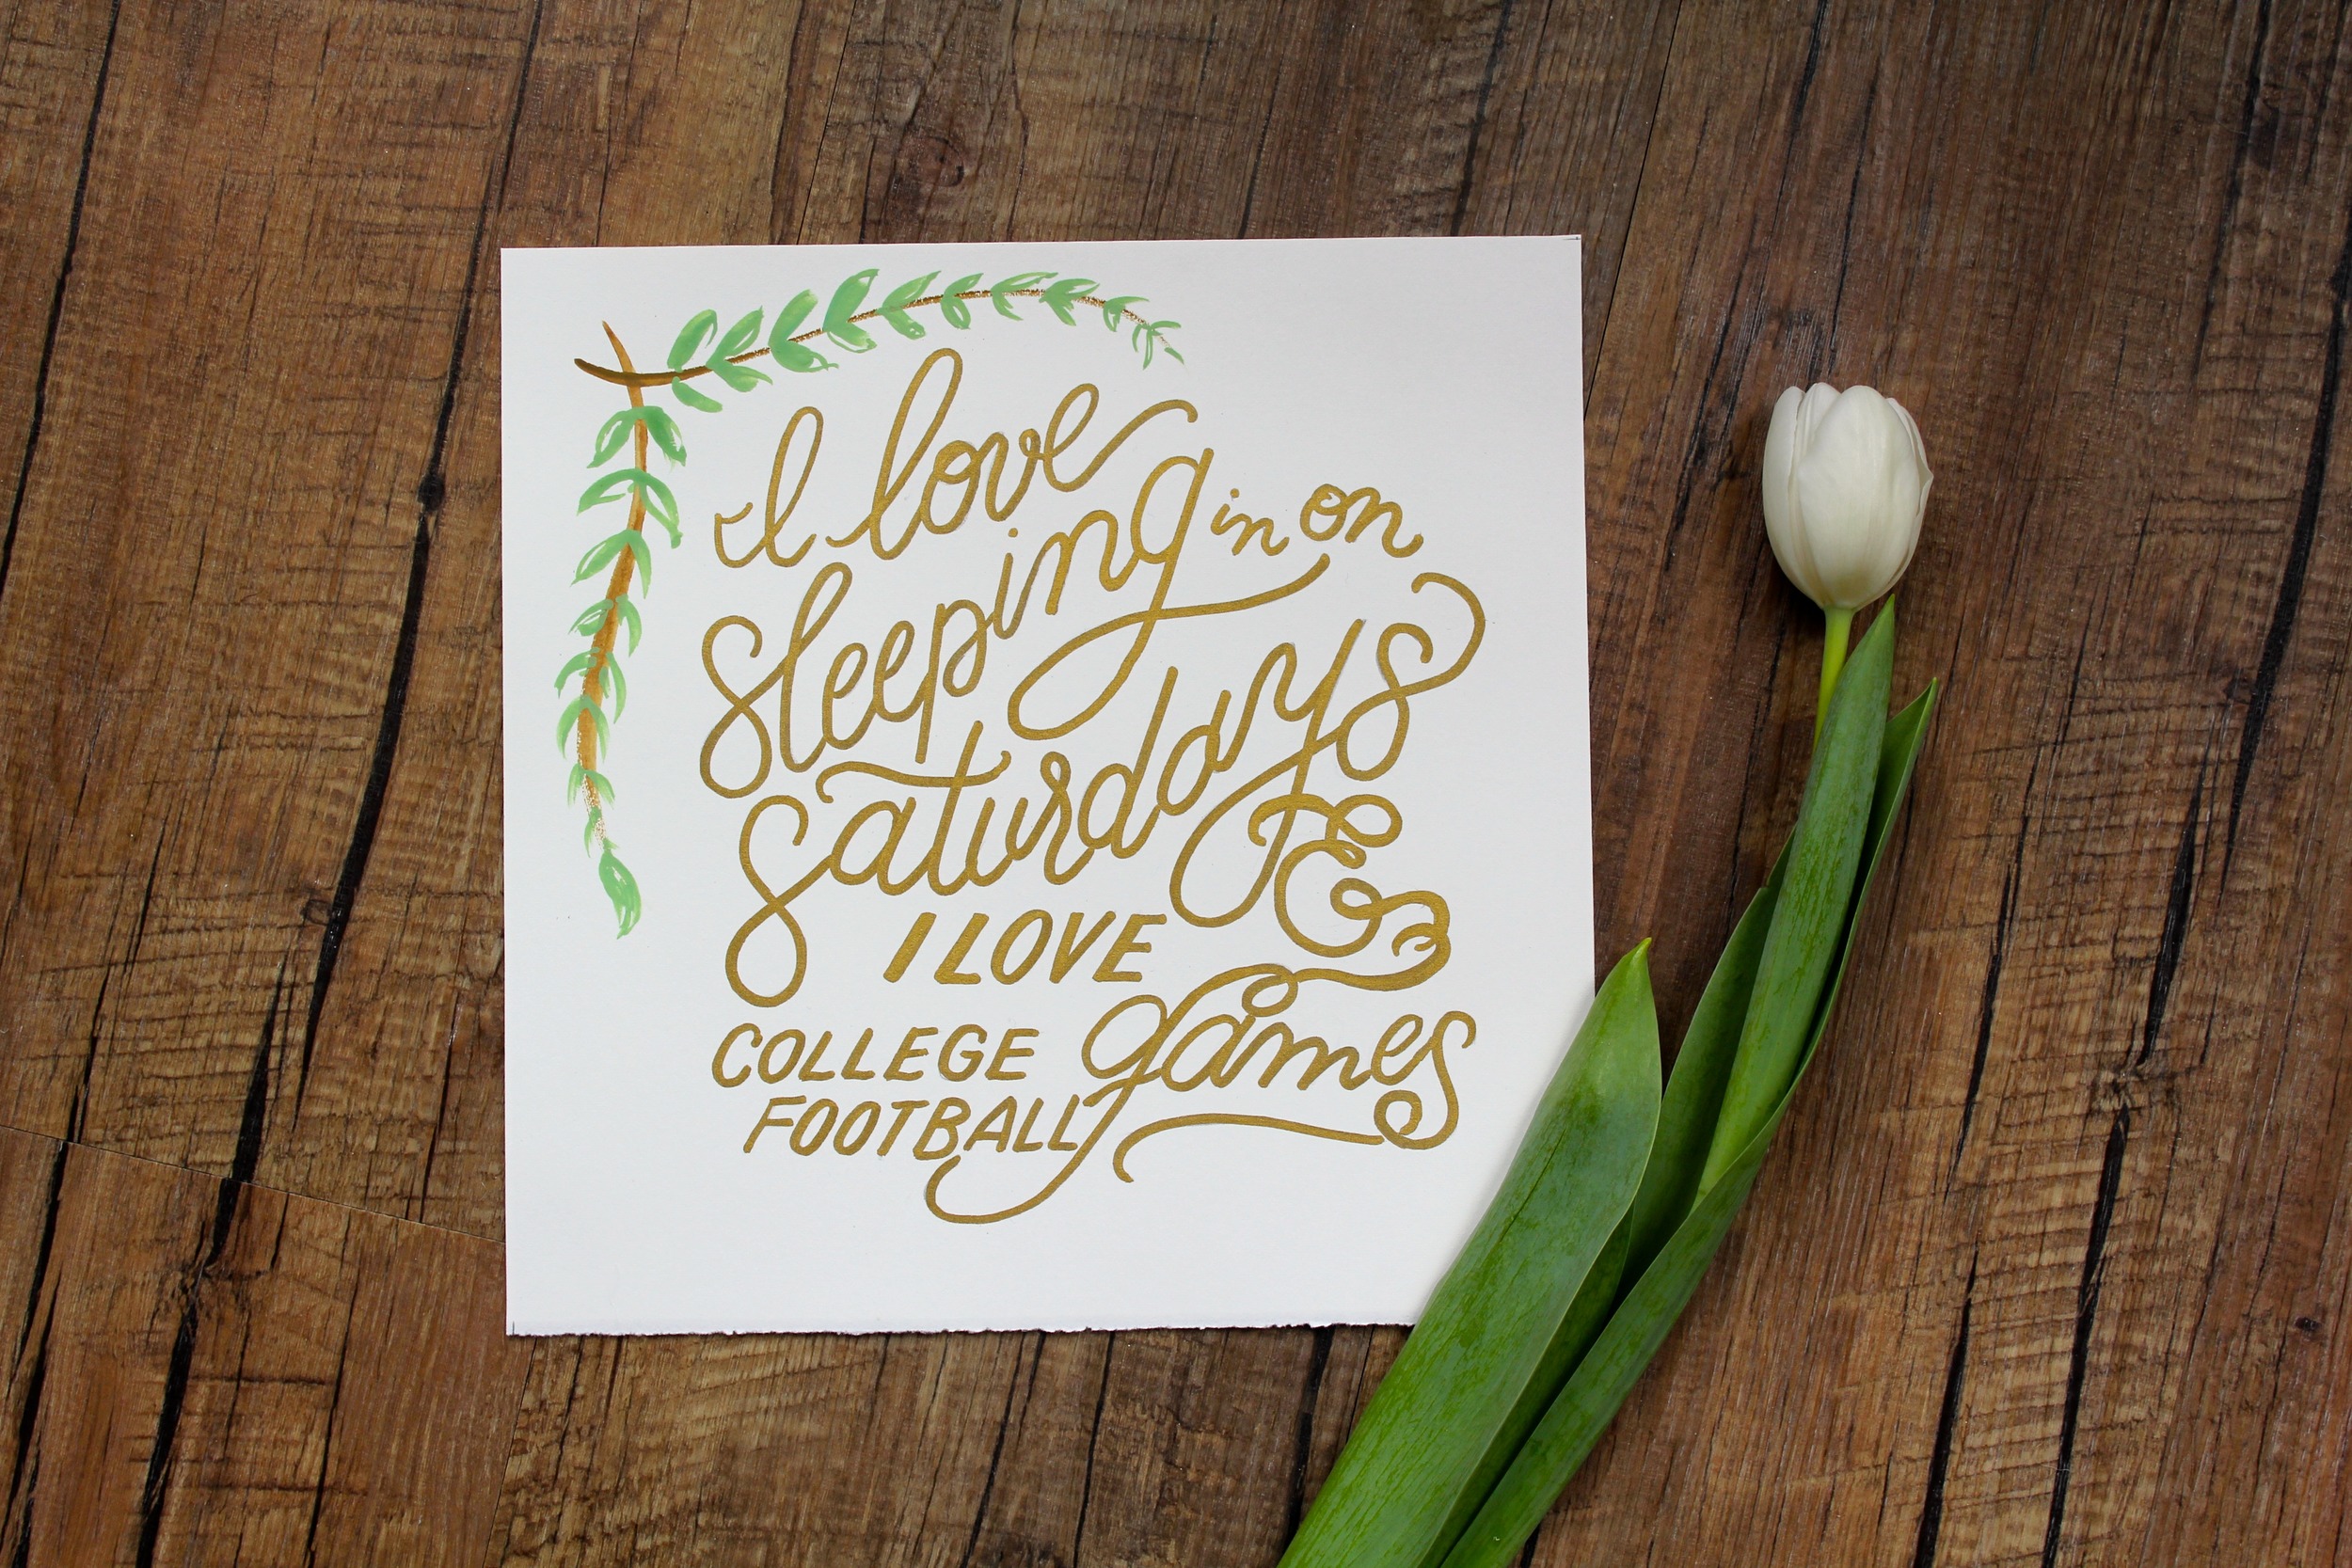 I love
sleeping in on
saturdays &
I LOVE
COLLEGE games
FOOTBALL